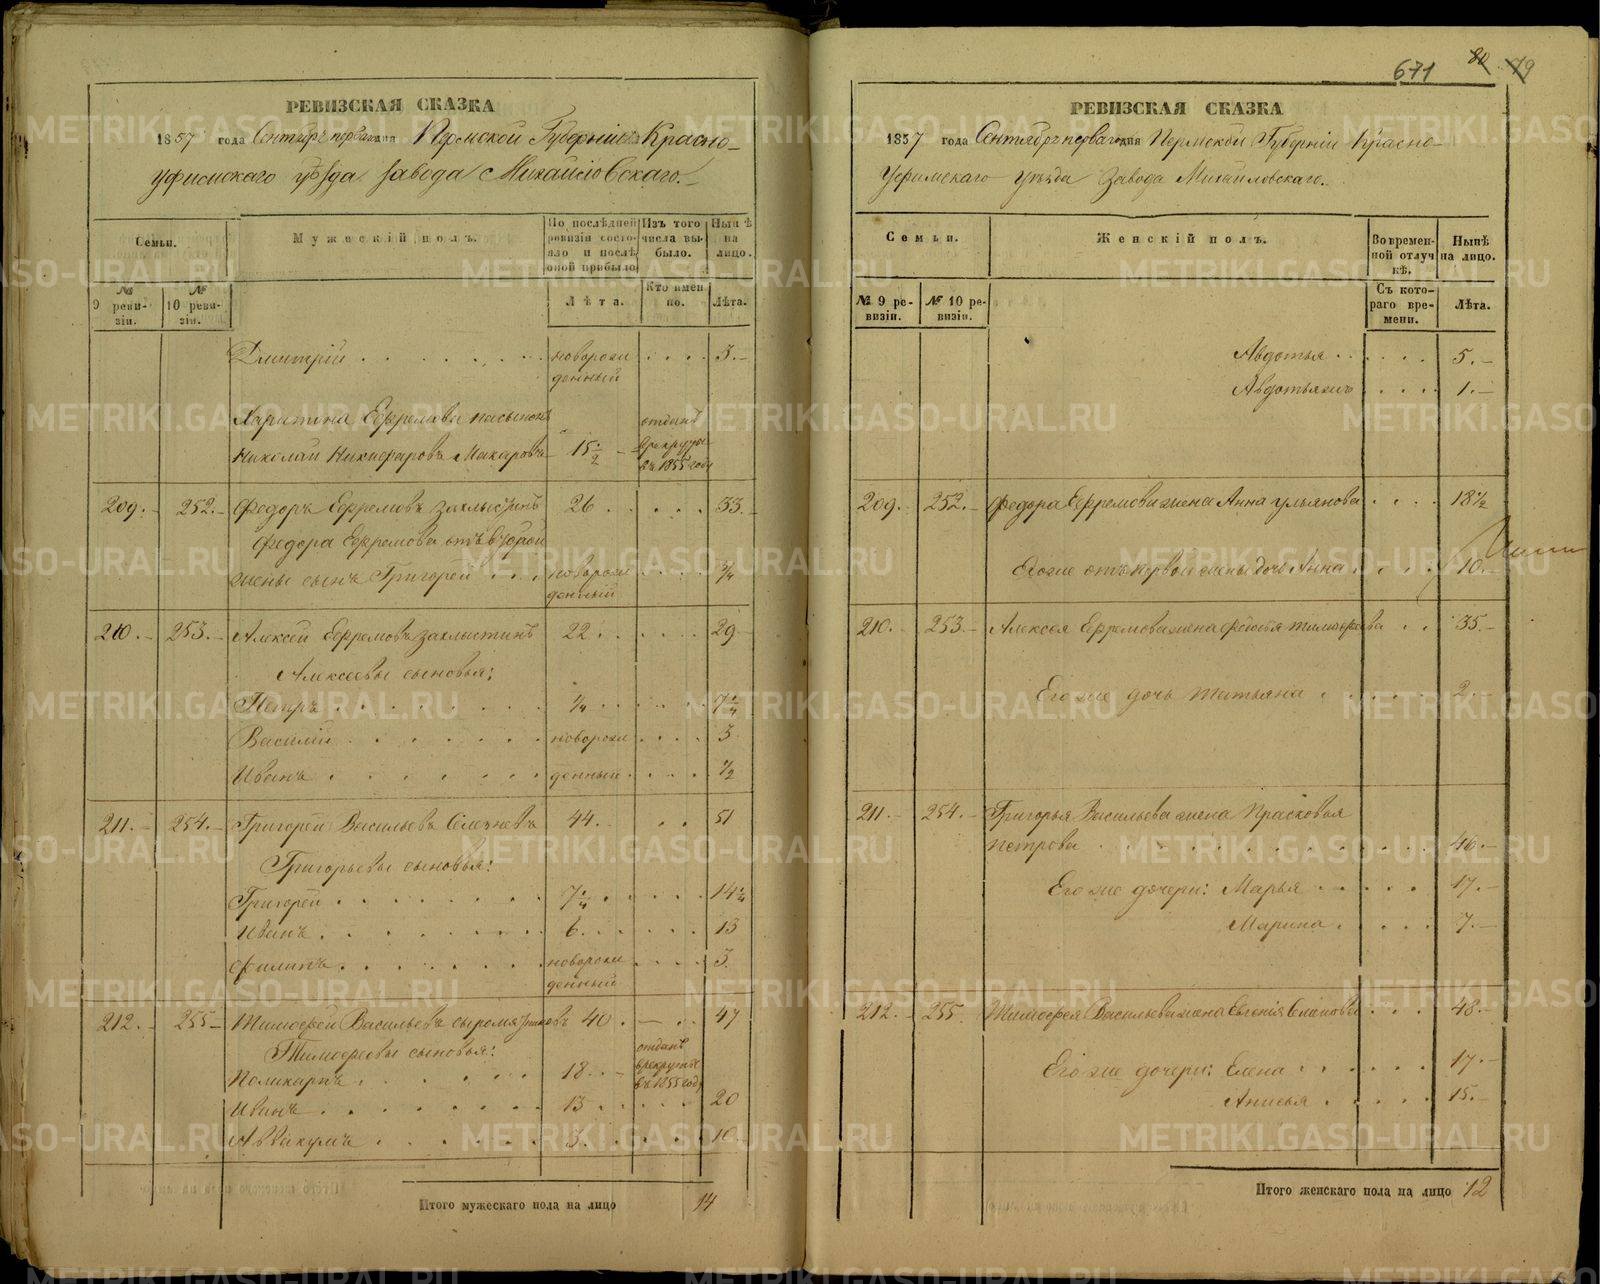 РЕВИЗСКАЯ СКАЗКА
1857 года Сентября перваго дня Пермской Губерніи Красно-
уфимскаго уѣзда завода Михайловскаго.
Семьи.
Мужескій полъ.
По послѣдней ревизіи состояло и послѣ оной прибыло
Изъ того числа выбыло.
Нынѣ на лицо.
№ 9 ревизіи.
№ 10 ревизіи.
Лѣта.
Кто именно.
Лѣта.
Дмитрій новорожденный 3.
Харитона Ефремова пасынокъ
Николай Никифоровъ Макаровъ 15 1/2 отданъ в рекруты въ 1855 году
209. 252. Федоръ Ефремовъ Захлыстинъ 26 33.
Федора Ефремова отъ второй
жены сынъ Григорей новорожденный 3/4
210. 253. Алексей Ефремовъ Захлыстинъ 22 29.
Алексеевы сыновья:
Петръ 1/4 7 1/4
Василій новорож 3
Иванъ денный 1/2
211. 254. Григорей Васильевъ 44. 51
Григорьевы сыновья:
Григорей 7 1/4 14 1/4
Иванъ 6. 13
Филипъ новорожденный 3.
212. 255. Тимофей Васильевъ Сыромятниковъ 40. 47
Тимофеевы сыновья:
Поликарпъ 18. отданъ в рекруты въ 1855 году
Иванъ 13 20
Аввакумъ 3. 10.
Итого мужескаго пола на лицо 14
671 80 79
РЕВИЗСКАЯ СКАЗКА
1857 года Сентября перваго дня Пермской Губерніи Красно-
уфимскаго уѣзда Завода Михайловскаго.
Семьи.
Женскій полъ.
Во временной отлучкѣ.
Нынѣ на лицо.
№ 9 ревизіи.
№ 10 ревизіи.
Съ котораго времени.
Лѣта.
Авдотья 5.
Авдотья жъ 1.
209. 252. Федора Ефремова жена Анна Ульянова 18 1/2
Его же отъ первой жены дочь Анна 10.
210. 253. Алексея Ефремова жена Тимофеева 35.
Его же дочь Татьяна 2.
211. 254. Григорья Васильева жена Прасковья
Петрова 46.
Его же дочери: Марья 17.
Марина 7.
212. 255. Тимофея Васильева жена Евгенія 48.
Его же дочери: Елена 17.
Анисья 15.
Итого женскаго пола на лицо 12
METRIKI.GASO-URAL.RU